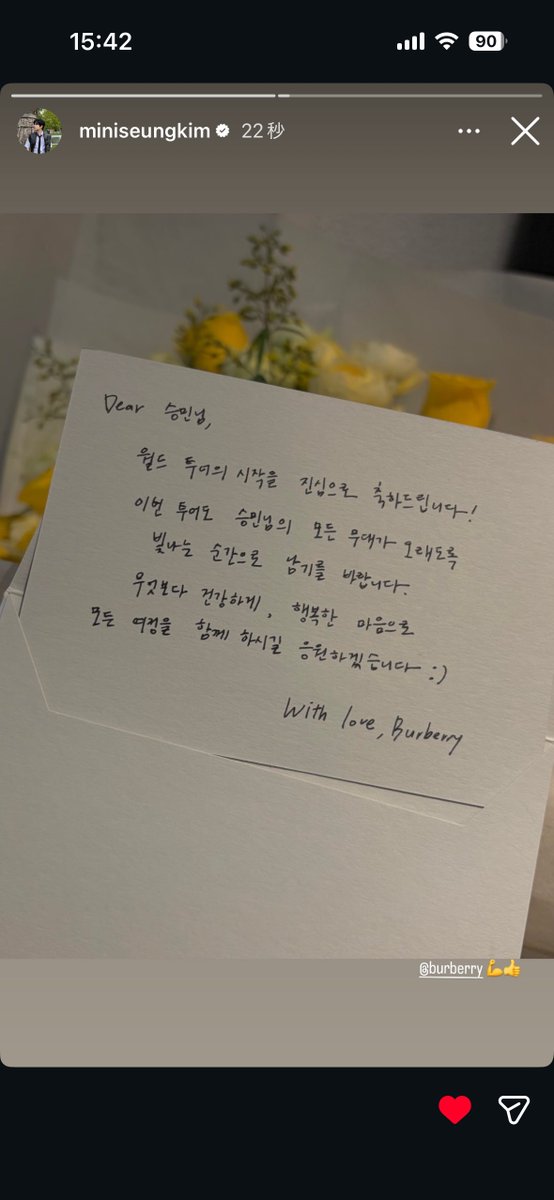 15:42
90
miniseungkim 22秒
Dear 승민님,
월드 투어의 시작을 진심으로 축하드립니다!
이번 투어도 승민님의 모든 무대가 오래도록
빛나는 순간으로 남기를 바랍니다.
무엇보다 건강하게, 행복한 마음으로
모든 여정을 함께 하시길 응원하겠습니다 :)
With love, Burberry
@burberry 💪👍